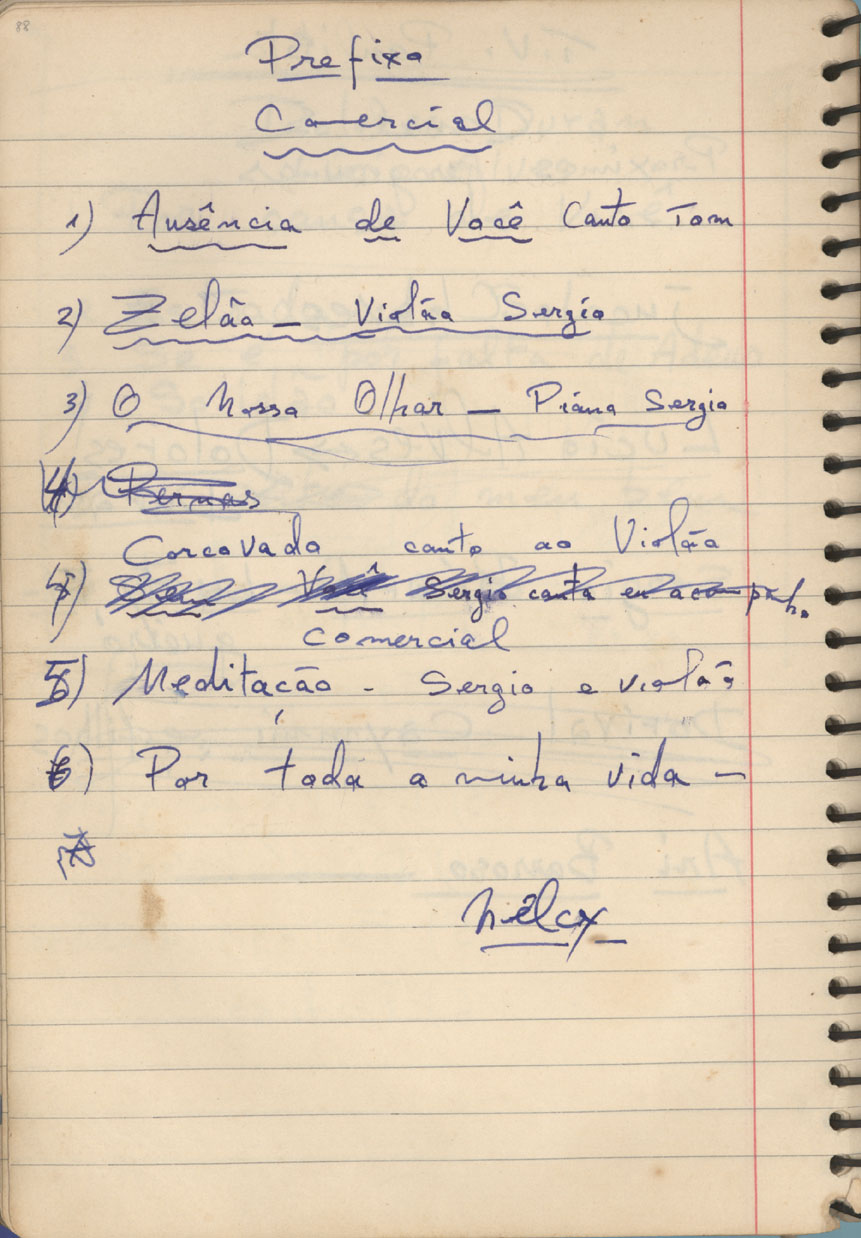 88
Prefixo
Comercial
1) Ausência de Você Canto Tom
2) Zelão - Violão Sergio
3) O Nosso Olhar - Piano Sergio
4) Pernas
Corcovado canto ao Violão
5) Seu Você Sergio canta eu acompanh.
comercial
5) Meditação - Sergio e violão
6) Por toda a minha vida -
7)